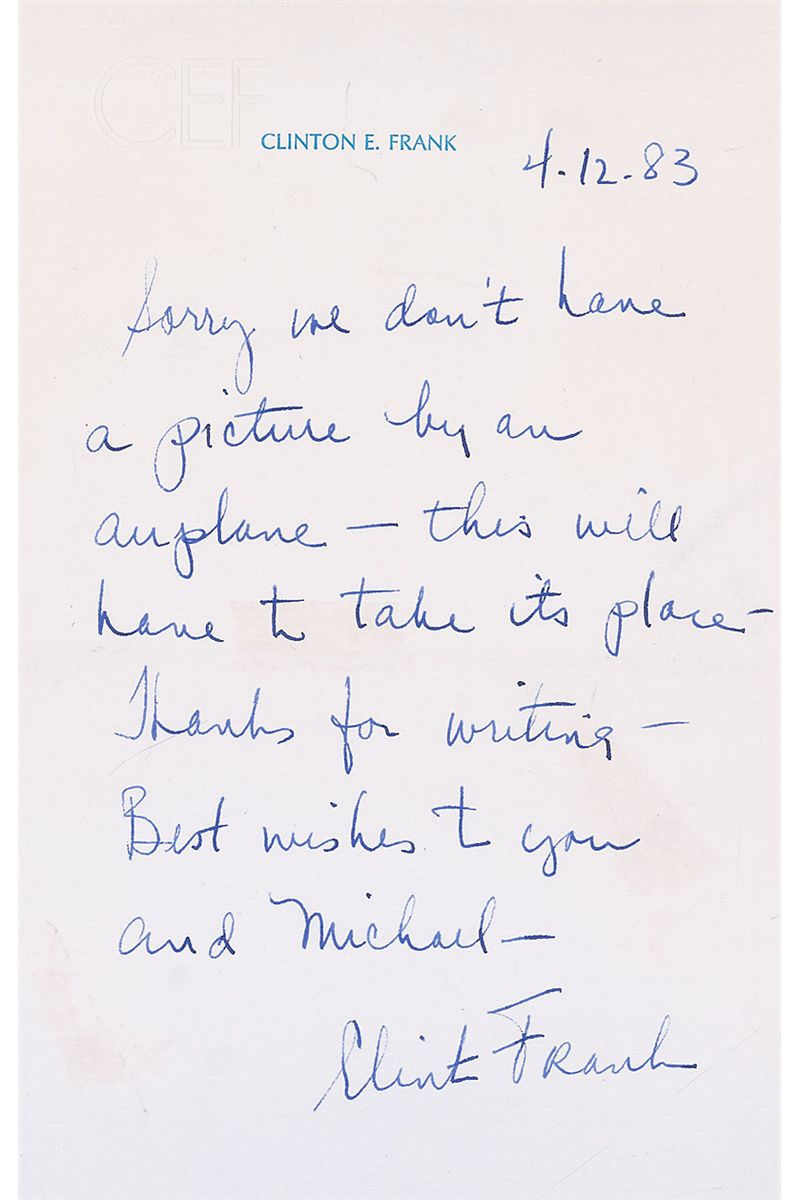 CEF
CLINTON E. FRANK
4.12.83
Sorry we don't have
a picture by an
airplane — this will
have to take its place —
Thanks for writing —
Best wishes to you
and Michael —
Clint Frank